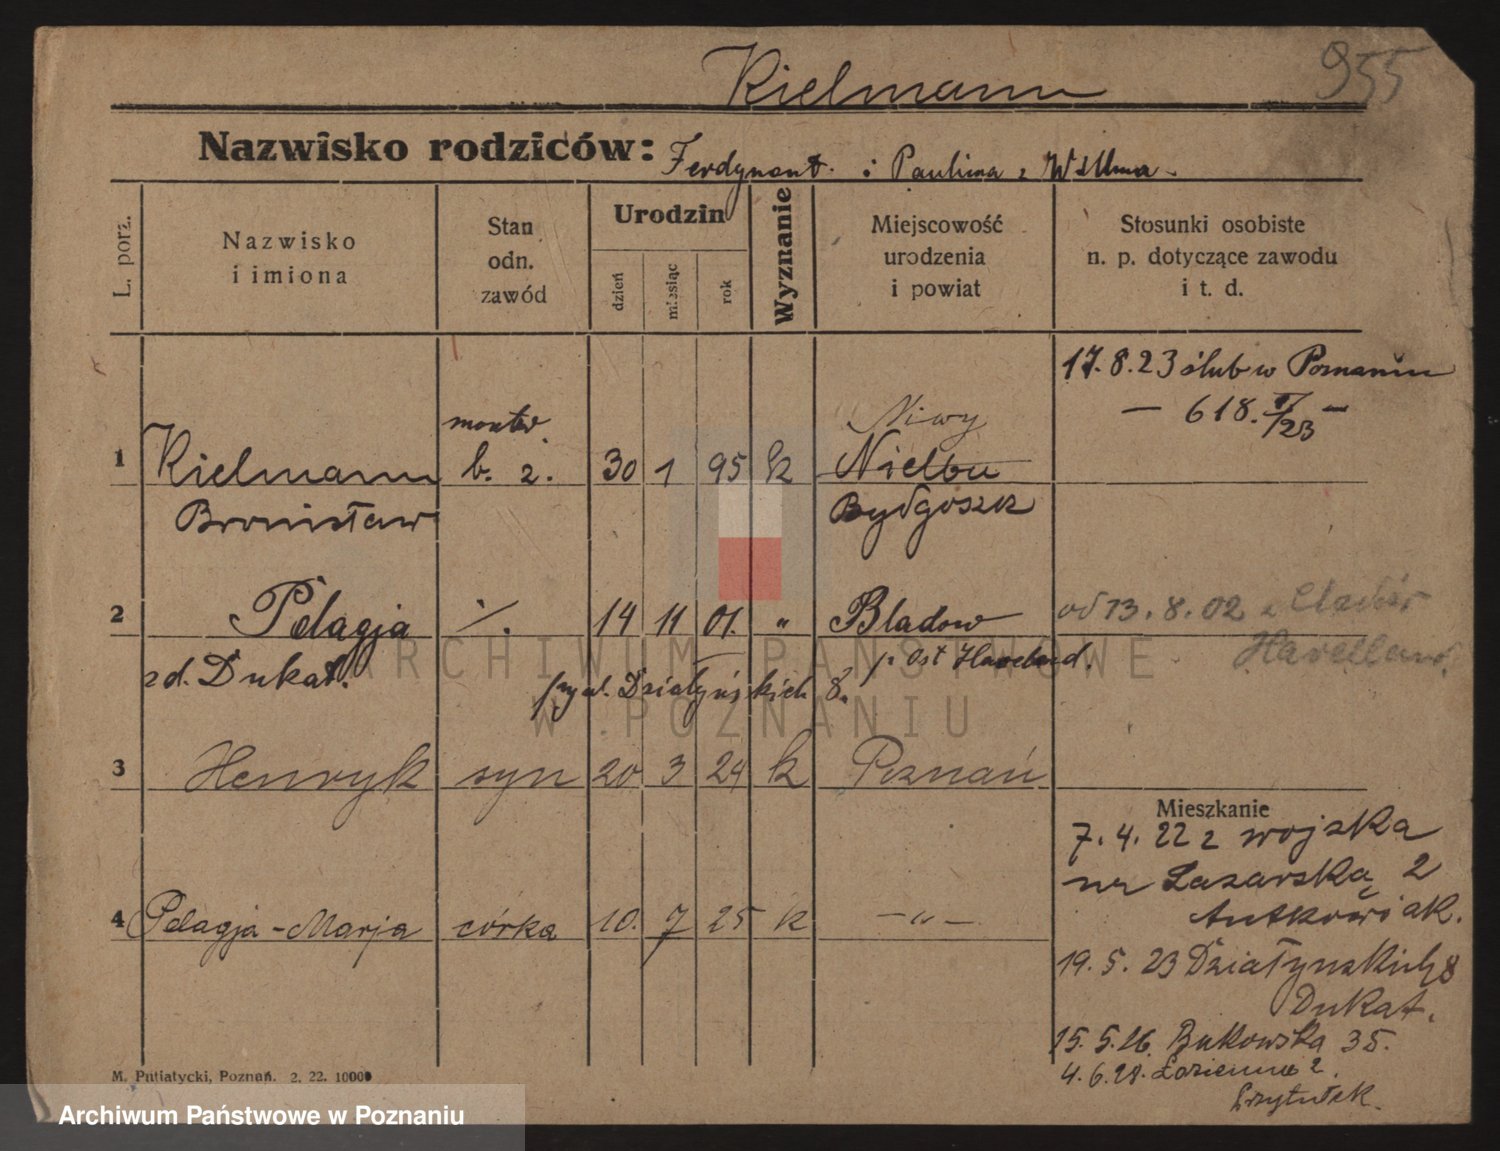 Kielmann
955
Nazwisko rodziców: Ferdynant. i Paulina z
L. porz.
Nazwisko i imiona
Stan odn. zawód
Urodzin
dzień
miesiąc
rok
Wyznanie
Miejscowość urodzenia i powiat
Stosunki osobiste n. p. dotyczące zawodu i t. d.
17.8.23 ślub w Poznaniu
— 618. /23 —
monter.
Niwy
1 Kielmann b. z. 30 1 95 k Nielbu
Bronisław Bydgoszcz
2 Pelagja ·/. 14 11 01. " Bladow od 13.8.02 z
zd. Dukat. p. Ost Haveland. Havelland.
przy ul. Działyńskich 8.
3 Henryk syn 20 3 24 k Poznań
Mieszkanie
7.4.22 z wojska
Łazarska 2
Antkowiak.
4 Pelagja-Marja córka 10. 7 25 k —"—
19.5.23 Działyńskich 8
Dukat.
15.5.26. Bukowska 35.
4.6.28. Łazienna 2.
M. Putiatycki, Poznań. 2. 22. 10000
ARCHIWUM PAŃSTWOWE
W POZNANIU
Archiwum Państwowe w Poznaniu